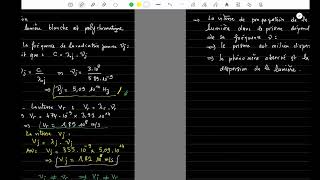 lumière blanche est polychromatique.
la fréquence de la radiation jaune νj:
C = λj . νj
νj = C/λj => νj = 3.10⁸/589.10⁻⁹
=> νj = 5,09.10¹⁴ Hz
- La vitesse Vr : Vr = λr . νr
Vr = 474.10⁻⁹ × 3,91.10¹⁴
=> Vr = 1,85.10⁸ m/s
La vitesse Vj :
Vj = λj . νj
AN: Vj = 355.10⁻⁹ × 5,09.10¹⁴
Vj = 1,81.10⁸ m/s
=> La vitesse de propagation de la
lumière dans le prisme dépend
de sa fréquence ν :
=> le prisme est milieu disper
=> le phénomène observé est la
dispersion de la lumière.